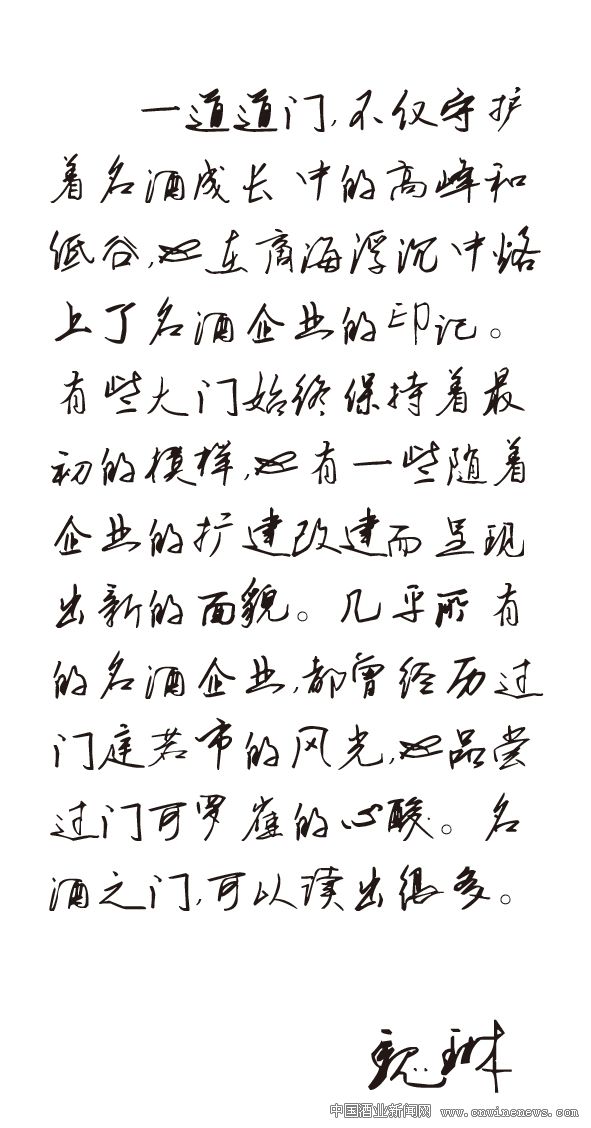 一道道门,不仅守护
着名酒成长中的高峰和
低谷,也在商海浮沉中烙
上了名酒企业的印记。
有些大门始终保持着最
初的模样,也有一些随着
企业的扩建改建而呈现
出新的面貌。几乎所有
的名酒企业,都曾经历过
门庭若市的风光,也品尝
过门可罗雀的心酸。名
酒之门,可以读出很多。
魏琳
中国酒业新闻网 www.cnwinenews.com